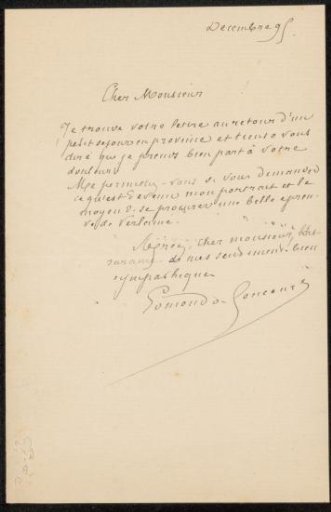 Decembre 95
Cher Monsieur
Je trouve votre lettre au retour d'un
petit sejour en province et tiens a vous
dire que je prends bien part à votre
douleur.
Me permettez-vous de vous demander
ce qu'est devenu mon portrait et le
moyen de se procurer une belle epreu-
ve de Verlaine.
Agréez, cher monsieur, l'as-
surance de mes sentiments bien
sympathiques
Edmond de Goncourt